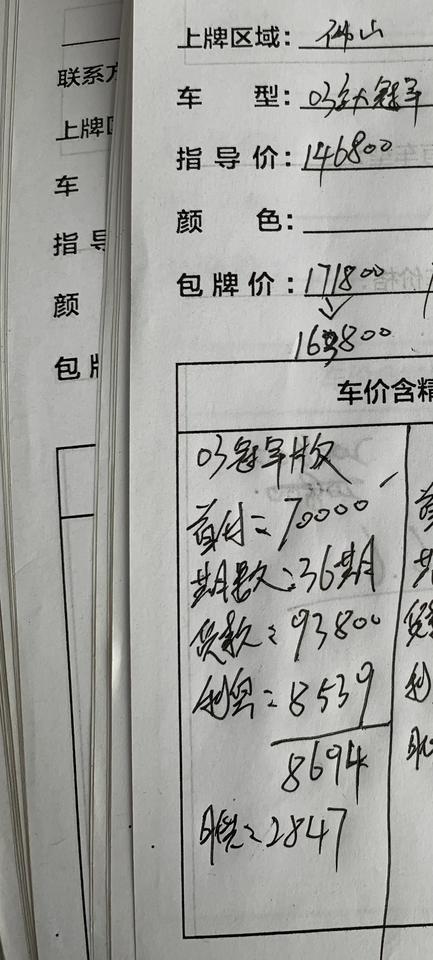 上牌区域：佛山
车 型：03 冠军
指导价：146800
颜 色：
包牌价：171800
163800
车价含精
03冠军版
首付：70000
期数：36期
贷款：93800
利息：8539
8694
月供：2847
联系方
上牌区
车
指导
颜
包牌